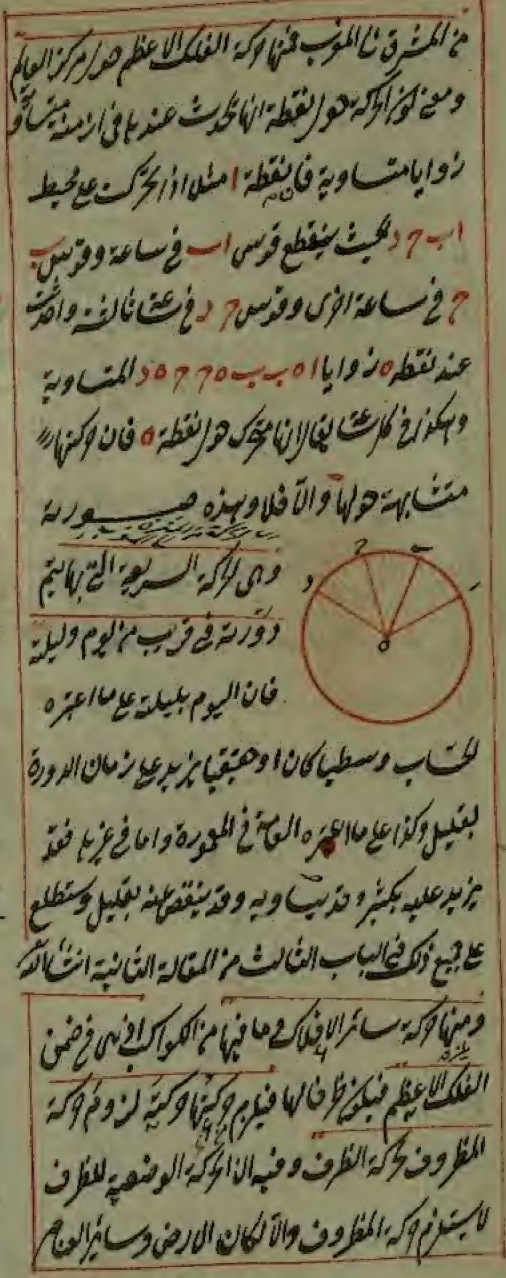 من المشرق الى المغرب فمنها حركة الفلك الاعظم حول مركز العالم
ومعنى كون الحركة حول نقطة انها تحدث عندها فى ازمنة متساوية
زوايا متساوية فان نقطة ا مثلا اذا تحركت على محيط
ا ب ح د بحيث ينقطع قوس ا ب فى ساعة وقوس ب
ح فى ساعة اخرى وقوس ح د فى ساعة ثالثة واحدثت
عند نقطة ه زوايا ا ه ب ب ه ح ح ه د المتساوية
وهكذا فى كل ساعة يقال انها متحركة حول نقطة ه فان حركتها
متشابهة حولها والا فلا وهذه صورته
وهى الحركة السريعة التى بها يتم
دورته فى قريب من يوم وليلة
فان اليوم بليلته على ما اعتبره
ا ب ح د ه
الحساب وسطيا كان او حقيقيا يزيد على زمان الدورة
بقليل وكذا على ما اعتبره العامة فى المعمورة واما فى غيرها فقد
يزيد عليه بكثير وقد يساويه وقد ينقص عنه بقليل وستطلع
على جميع ذلك فى الباب الثالث من المقالة الثانية انشاء الله
ومنها حركة سائر الافلاك وما فيها من الكواكب اذ هى فى ضمن
الفلك الاعظم فيكون ظرفا لها فيلزم حركتها حركته لزوم حركة
المظروف لحركة الظرف وفيه ان الحركة الوضعية للظرف
لا يستلزم حركة المظروف والا لكان الارض وسائر العناصر